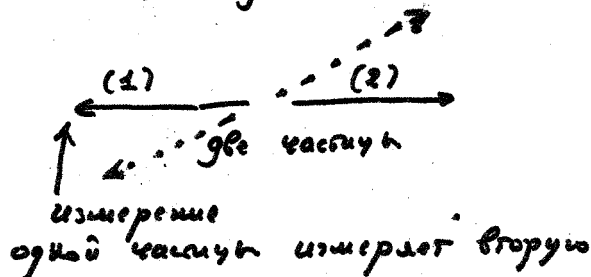 (1) (2)
две частицы
измерение
одной частицы измеряет вторую